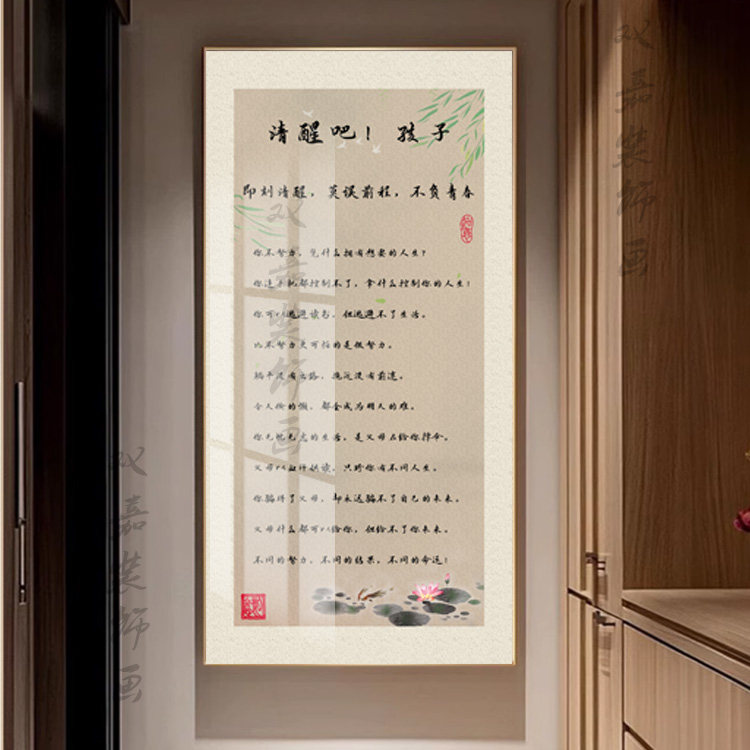 清醒吧！孩子
即刻清醒，莫误前程，不负青春
你不努力，凭什么拥有想要的人生？
你连手机都控制不了，拿什么控制你的人生！
你可以逃避读书，但逃避不了生活。
比不努力更可怕的是假努力。
躺平没有出路，拖延没有前途。
今天偷的懒，都会成为明天的难。
你无忧无虑的生活，是父母在给你撑命。
父母以血汗供读，只盼你有不同人生。
你骗得了父母，却永远骗不了自己的未来。
父母什么都可以给你，但给不了你未来。
不同的努力，不同的结果，不同的命运！
双嘉装饰画
双嘉装饰画
双嘉装饰画